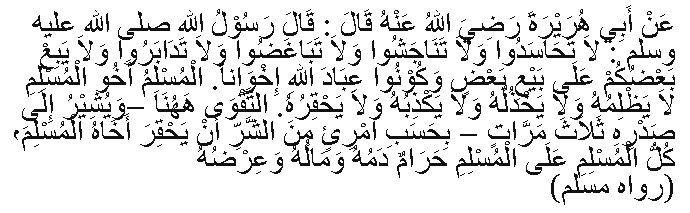 عَنْ أَبِي هُرَيْرَةَ رَضِيَ اللهُ عَنْهُ قَالَ : قَالَ رَسُوْلُ اللهِ صلى الله عليه
وسلم : لاَ تَحَاسَدُوا وَلاَ تَنَاجَشُوا وَلاَ تَبَاغَضُوا وَلاَ تَدَابَرُوا وَلاَ يَبِعْ
بَعْضُكُمْ عَلَى بَيْعِ بَعْضٍ وَكُوْنُوا عِبَادَ اللهِ إِخْوَاناً. الْمُسْلِمُ أَخُو الْمُسْلِمِ
لاَ يَظْلِمُهُ وَلاَ يَخْذُلُهُ وَلاَ يَكْذِبُهُ وَلاَ يَحْقِرُهُ. التَّقْوَى هَهُنَا –وَيُشِيْرُ إِلَى
صَدْرِهِ ثَلاَثَ مَرَّاتٍ – بِحَسَبِ امْرِئٍ مِنَ الشَّرِّ أَنْ يَحْقِرَ أَخَاهُ الْمُسْلِمَ،
كُلُّ الْمُسْلِمِ عَلَى الْمُسْلِمِ حَرَامٌ دَمُهُ وَمَالُهُ وَعِرْضُهُ
(رواه مسلم)